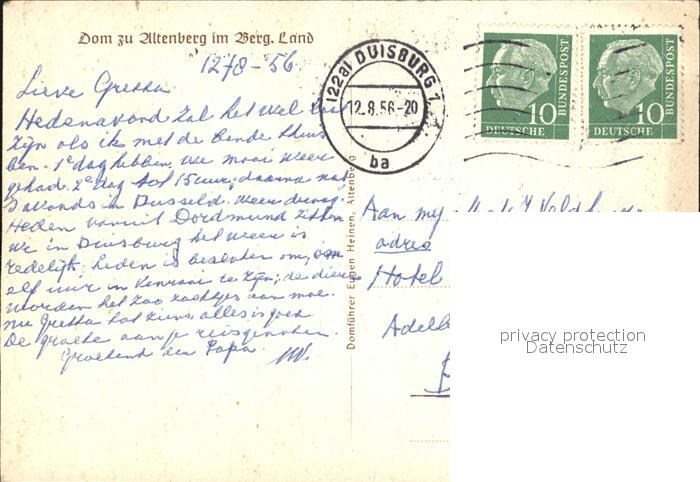 Dom zu Altenberg im Berg. Land
12/8-56
Lieve Gretha
Hedenavond zal het wel
zijn als ik met de bende thuis
ben. 1e dag hebben we mooi weer
gehad. 2e dag tot 15 uur, daarna nat
's avonds in Dusseld. weer droog.
Heden vanuit Dordmund zitten
we in Duisburg het weer is
redelijk. heden is besloten om,
elf uur in Venraai te zijn; de
worden het zoo zachtjes aan moe.
nu Gretha tot ziens, alles is goed
De groeten aan je reisgenoten.
Groetend den Papa.
Domführer Eugen Heinen, Altenberg
(22a) DUISBURG 1
12.8.56-20
ba
10
DEUTSCHE
BUNDESPOST
10
DEUTSCHE
BUNDESPOST
Aan mej
adres
Hotel
Adelb
privacy protection
Datenschutz